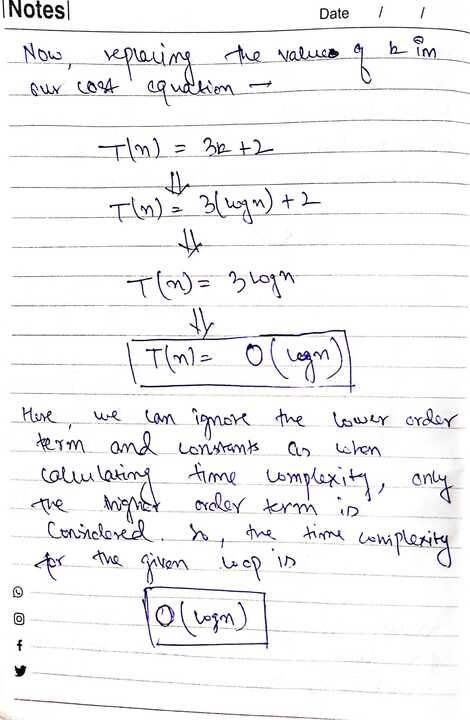 Notes
Date / /
Now, replacing the values of k in
our cost equation →
T(n) = 3k + 2
⇓
T(n) = 3(logn) + 2
⇓
T(n) = 3 logn
⇓
T(n) = O(logn)
Here, we can ignore the lower order
term and constants as when
calculating time complexity, only
the highest order term is
Considered. So, the time complexity
for the given loop is
O(logn)